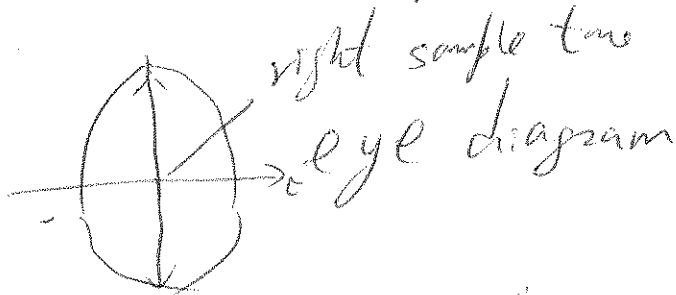 right sample time
t
eye diagram